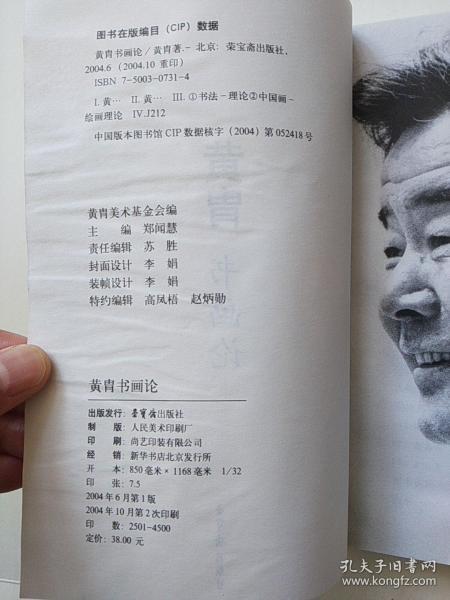 图书在版编目（CIP）数据
黄胄书画论/黄胄著.－北京：荣宝斋出版社，
2004.6（2004.10 重印）
ISBN 7-5003-0731-4
Ⅰ.黄… Ⅱ.黄… Ⅲ.①书法－理论②中国画－
绘画理论 Ⅳ.J212
中国版本图书馆CIP数据核字（2004）第052418号
黄胄美术基金会编
主 编 郑闻慧
责任编辑 苏 胜
封面设计 李 娟
装帧设计 李 娟
特约编辑 高凤梧 赵炳勋
黄胄书画论
出版发行：荣宝斋出版社
制 版：人民美术印刷厂
印 刷：尚艺印装有限公司
经 销：新华书店北京发行所
开 本：850毫米×1168毫米 1/32
印 张：7.5
2004年6月第1版
2004年10月第2次印刷
印 数：2501-4500
定价：38.00 元
黄胄书画论
孔夫子旧书网
www.kongfz.com